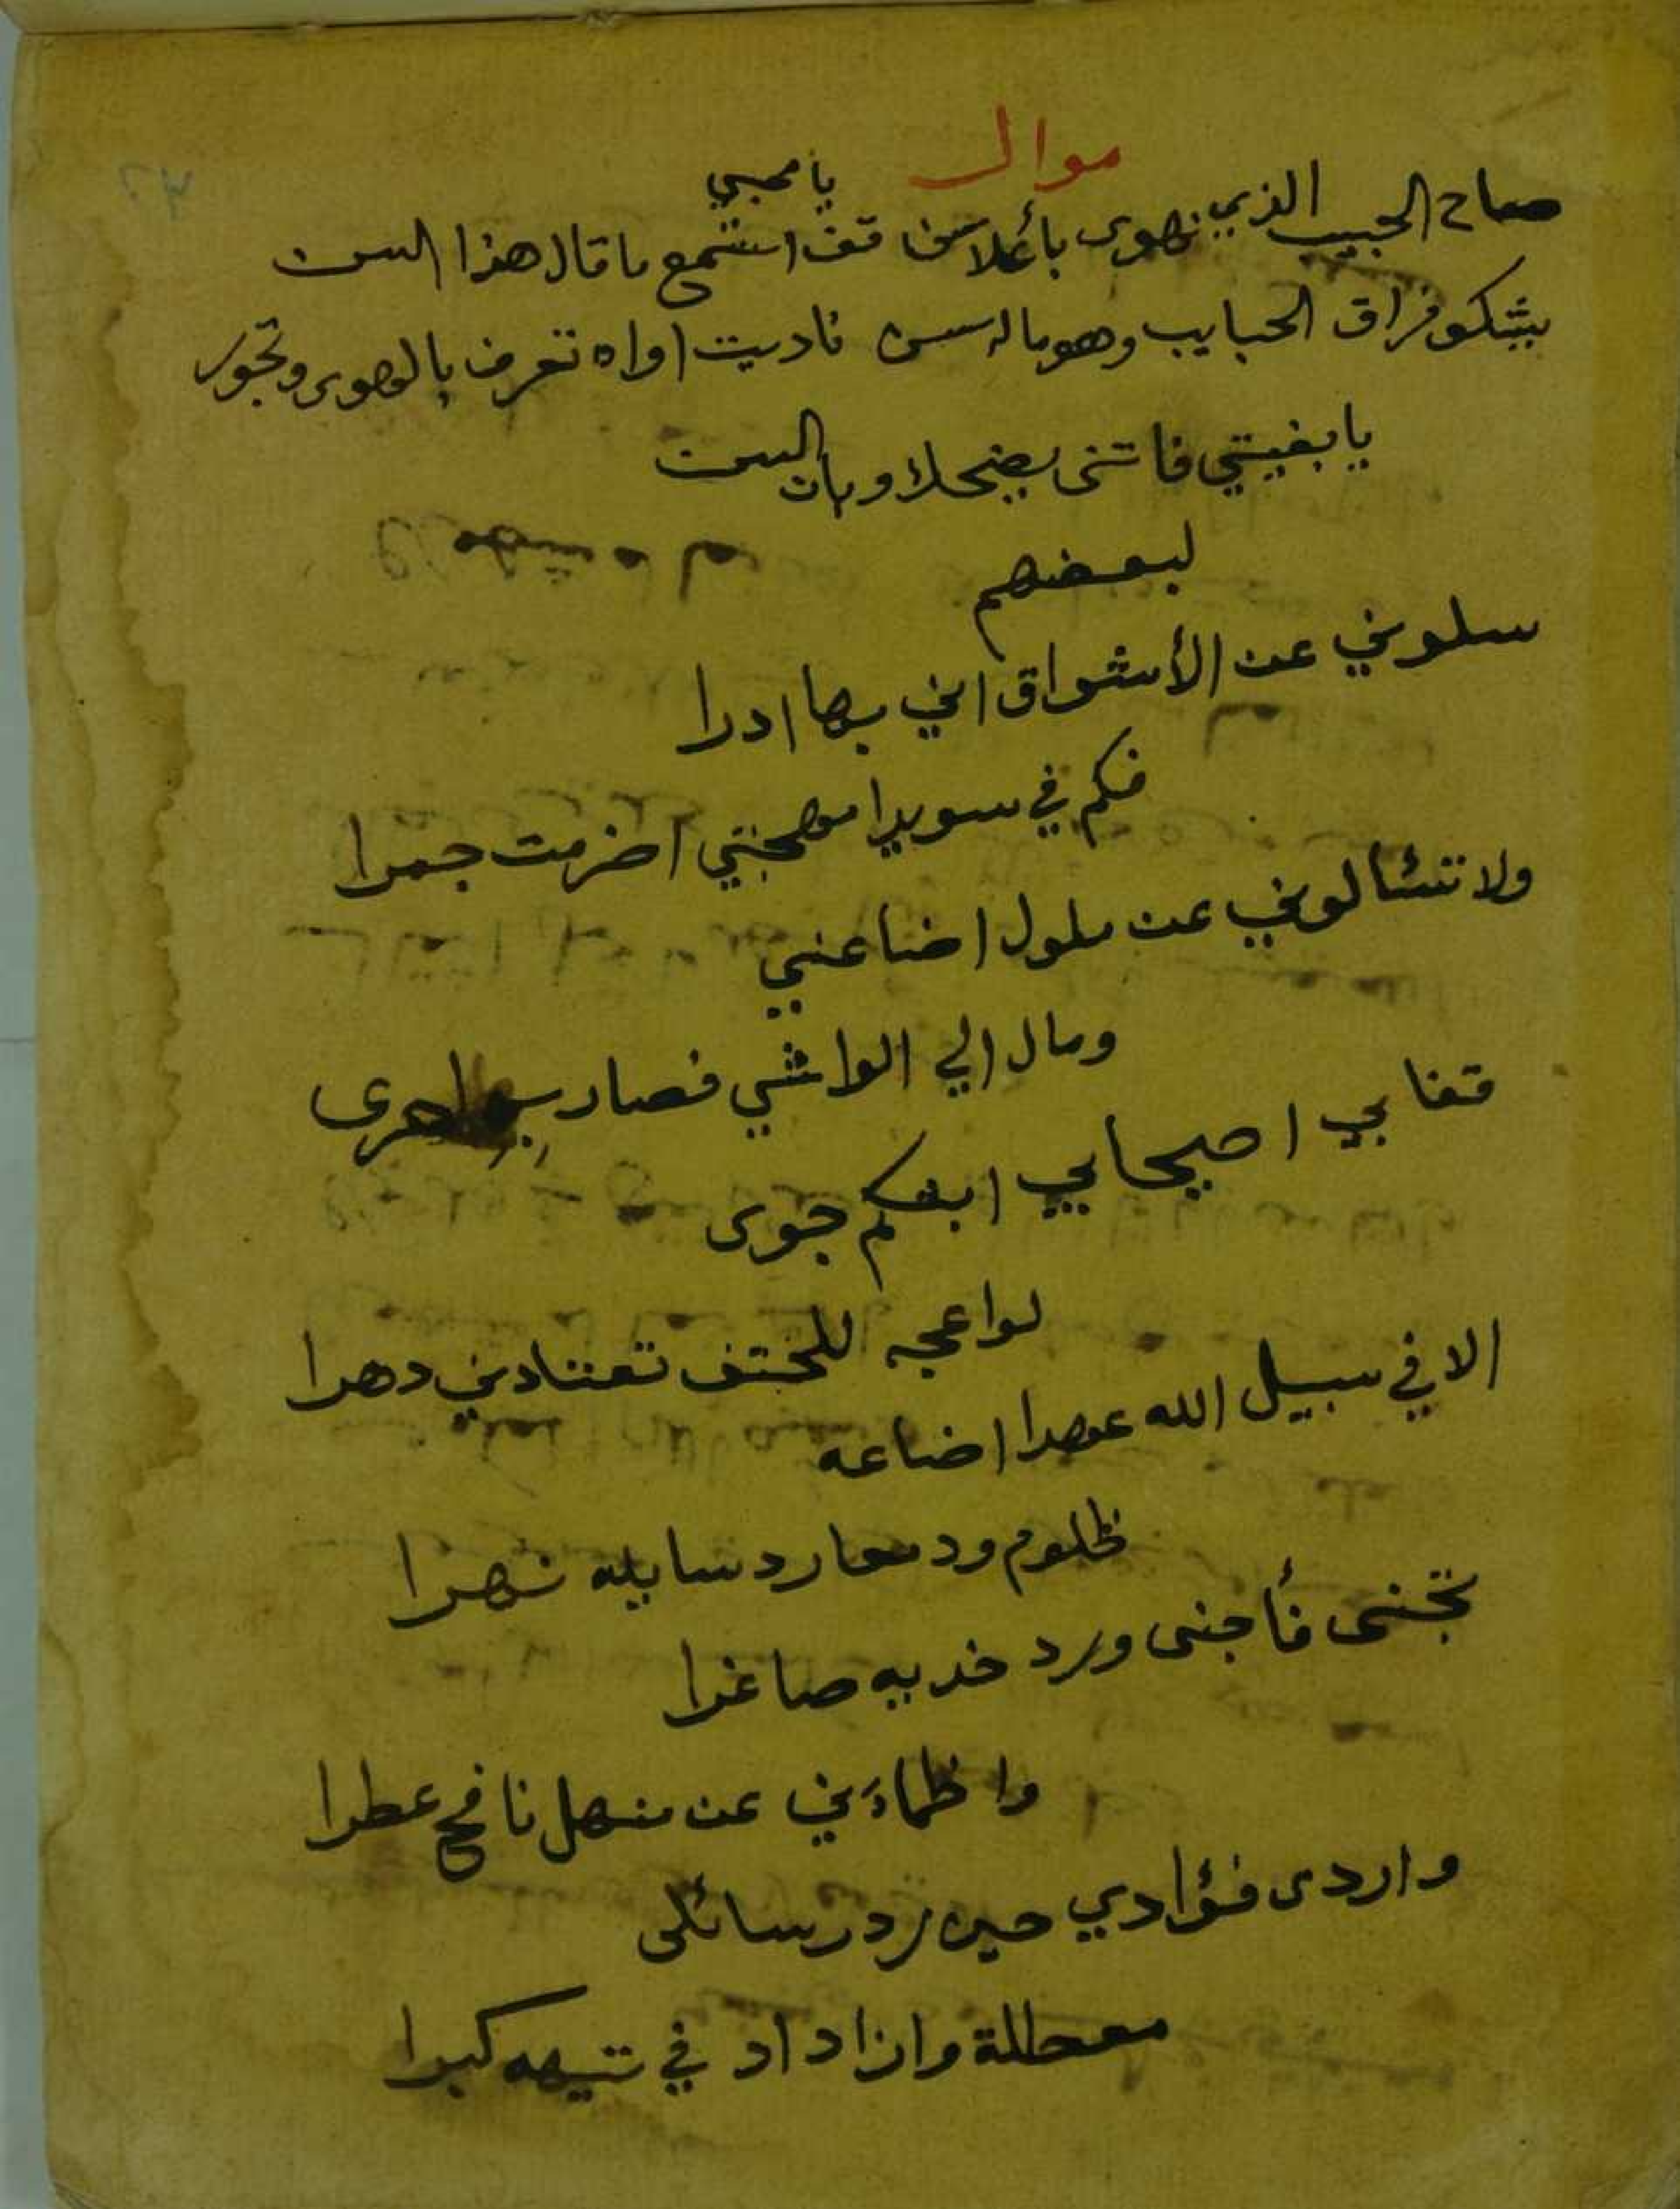 موال
يا محبي
صاح الحبيب الذي نهوى بأعلا سن قف استمع ما قال هذا السن
يشكو فراق الحبايب وهو ماله سن ناديت اواه تعرف بالهوى وتجور
يا بغيتي فانثنى يضحك وبان السن
لبعضهم
سلوني عن الأشواق اني بها ادرا
فكم في سويدا مهجتي اضرمت جمرا
ولا تسئالوني عن ملول اضاعني
ومال الي الواشي فصار احرى
قفا بي اصيحابي ابثكم جوى
لواعجه للحتف تعتادني دهرا
الا في سبيل الله عهدا اضاعه
ظلوم ودمعا رد سايله نهرا
تجنى فأجنى ورد خديه صاغرا
واظماءني عن منهل نافح عطرا
واردى فؤادي حين رد رسائلى
معطلة وازداد في تيهه كبرا